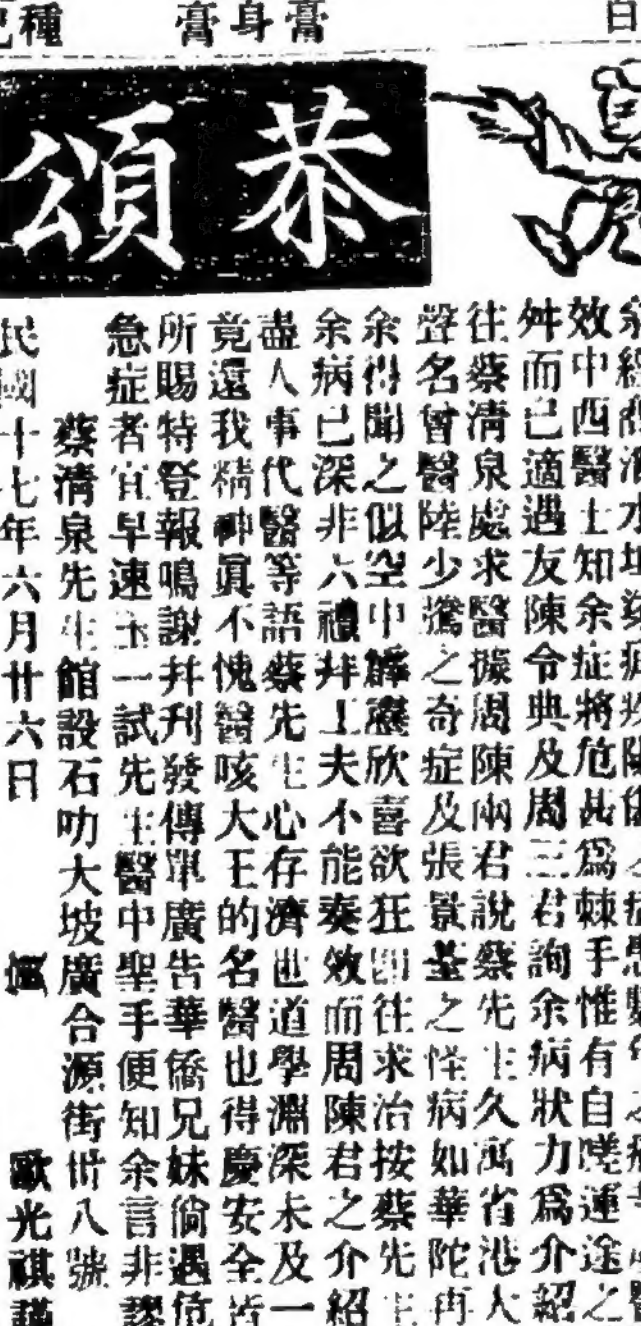 白
膏身膏
種
恭頌
效中西醫士知余症將危甚爲棘手惟有自嗟運途之
舛而已適遇友陳令典及周三君詢余病狀力爲介紹
往蔡清泉處求醫據周陳兩君說蔡先生久寓省港大
聲名曾醫陸少騰之奇症及張景荃之怪病如華陀再
余得聞之似空中霹靂欣喜欲狂即往求治按蔡先生
余病已深非六禮拜工夫不能奏效而周陳君之介紹
盡人事代醫等語蔡先生心存濟世道學淵深未及一
竟還我精神眞不愧醫咳大王的名醫也得慶安全皆
所賜特登報鳴謝幷刊發傳單廣告華僑兄妹倘遇危
急症者宜早速至一試先生醫中聖手便知余言非謬
蔡清泉先生館設石叻大坡廣合源街卅八號
民國十七年六月廿六日
歐光祺謹